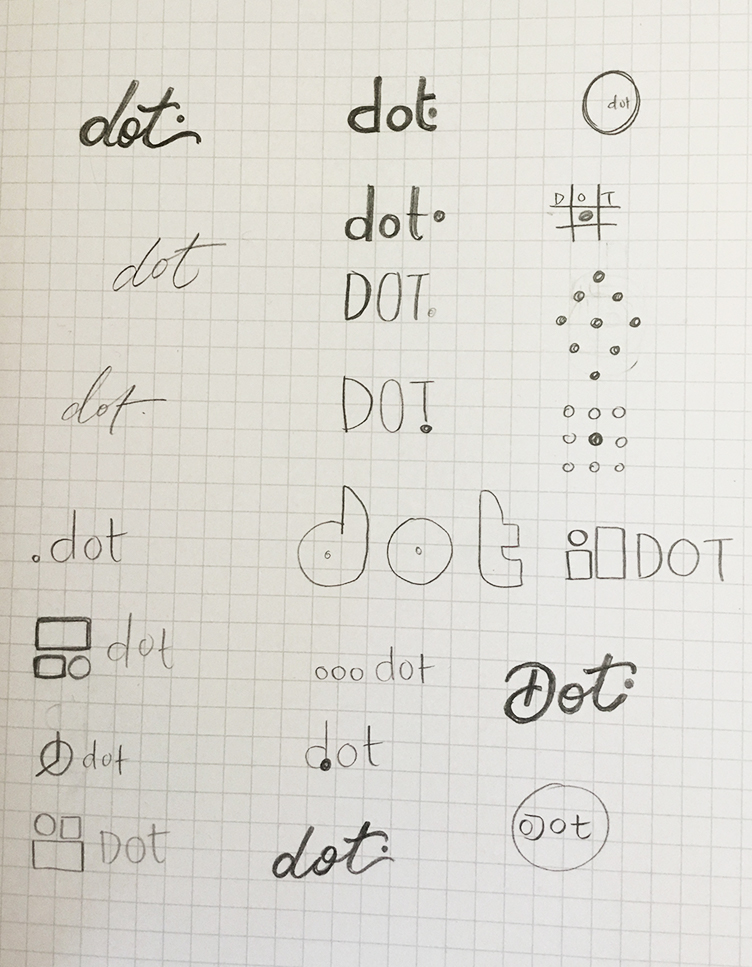 dot.
dot.
dot
dot.
D O T
dot
DOT.
dot.
DOT.
.dot
dot
DOT
dot
dot
Dot.
dot
dot
DOT
dot.
Dot